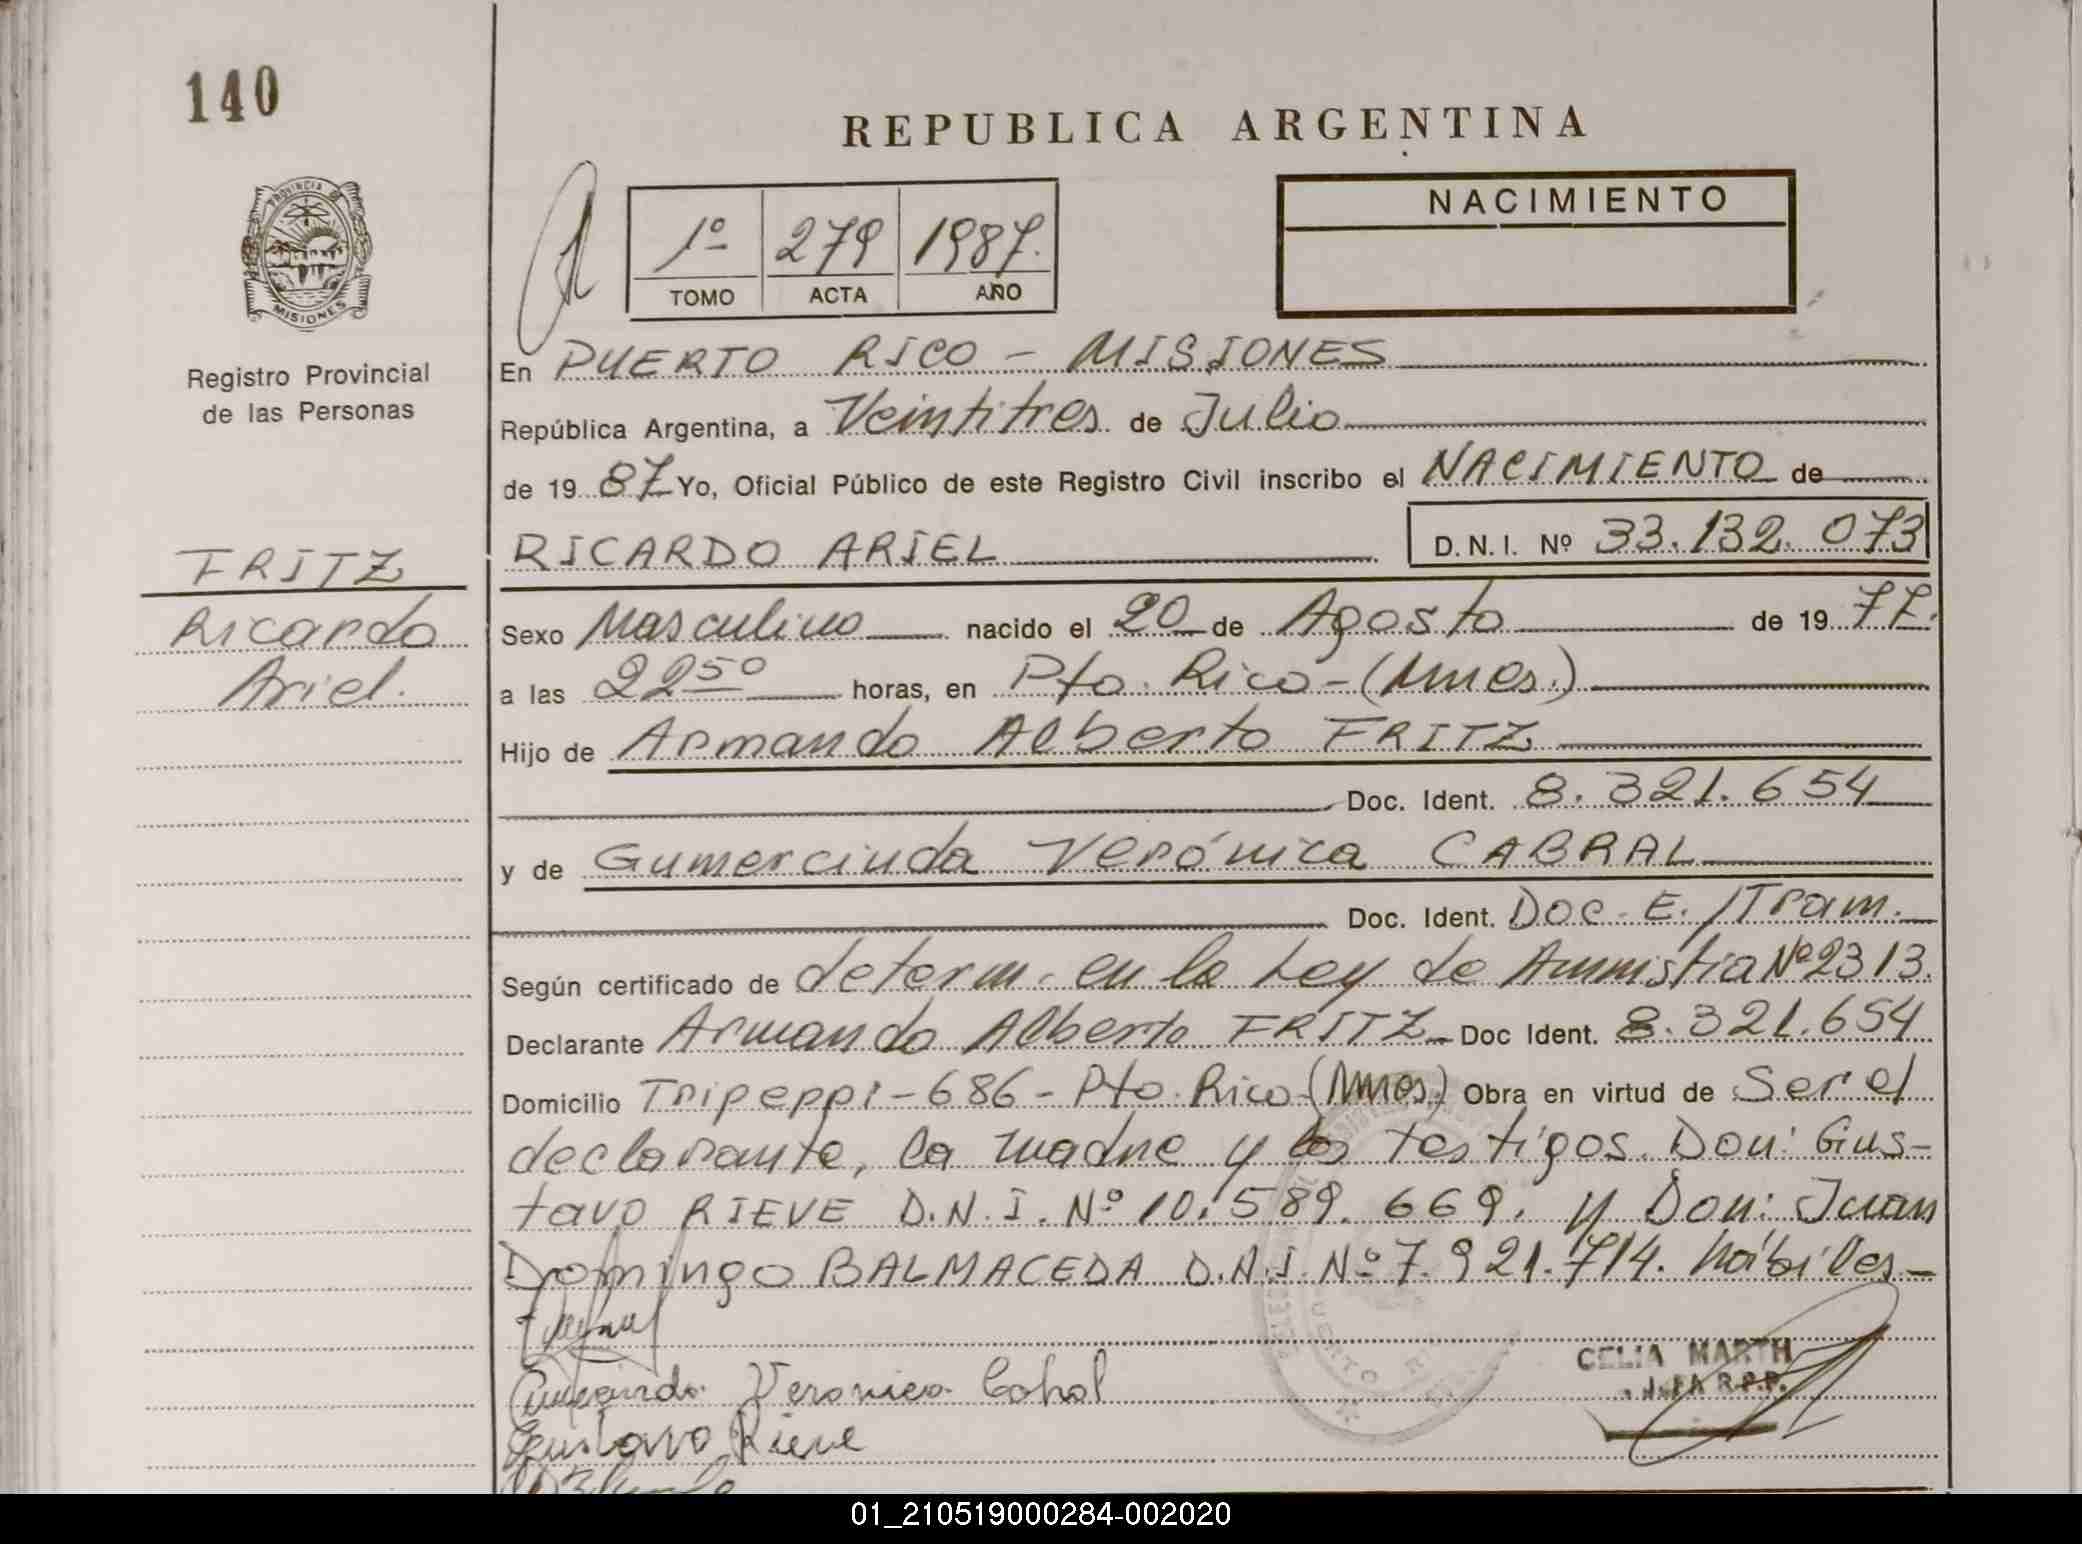 140
REPUBLICA ARGENTINA
PROVINCIA DE
MISIONES
Registro Provincial
de las Personas
1º 279 1987.
TOMO ACTA AÑO
NACIMIENTO
En PUERTO RICO - MISIONES
República Argentina, a Veintitres de Julio
de 19 87 Yo, Oficial Público de este Registro Civil inscribo el NACIMIENTO de
RICARDO ARIEL D.N.I. Nº 33.132.073
FRITZ
Ricardo
Ariel.
Sexo Masculino nacido el 20 de Agosto de 19 77.
a las 22⁵⁰ horas, en Pto. Rico-(Mnes.)
Hijo de Armando Alberto FRITZ
Doc. Ident. 8.321.654
y de Gumercinda Verónica CABRAL
Doc. Ident. Doc. E./Tram.
Según certificado de determ. en la Ley de Amnistia Nº 2313.
Declarante Armando Alberto FRITZ Doc Ident. 8.321.654
Domicilio Tripeppi-686-Pto. Rico-(Mnes.) Obra en virtud de Ser el
declarante, la madre y los testigos. Don: Gus-
tavo RIEVE D.N.I. Nº 10.589.669. y Don: Juan
Domingo BALMACEDA D.N.I. Nº 7.921.714. hábiles-
CELIA MARTH
J.FA R.P.P.
Veronica Cabral
Gustavo Rieve
01_210519000284-002020